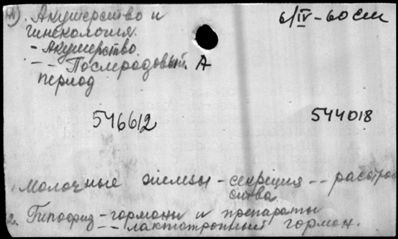 Акушерство и
гинекология.
6/IV-60 см
- Акушерство.
- - Послеродовый А
период
546612
544018
1. Молочные железы - секреция - - расстрой
ства.
2. Гипофиз - гормоны и препараты
- - лактотропный гормон.